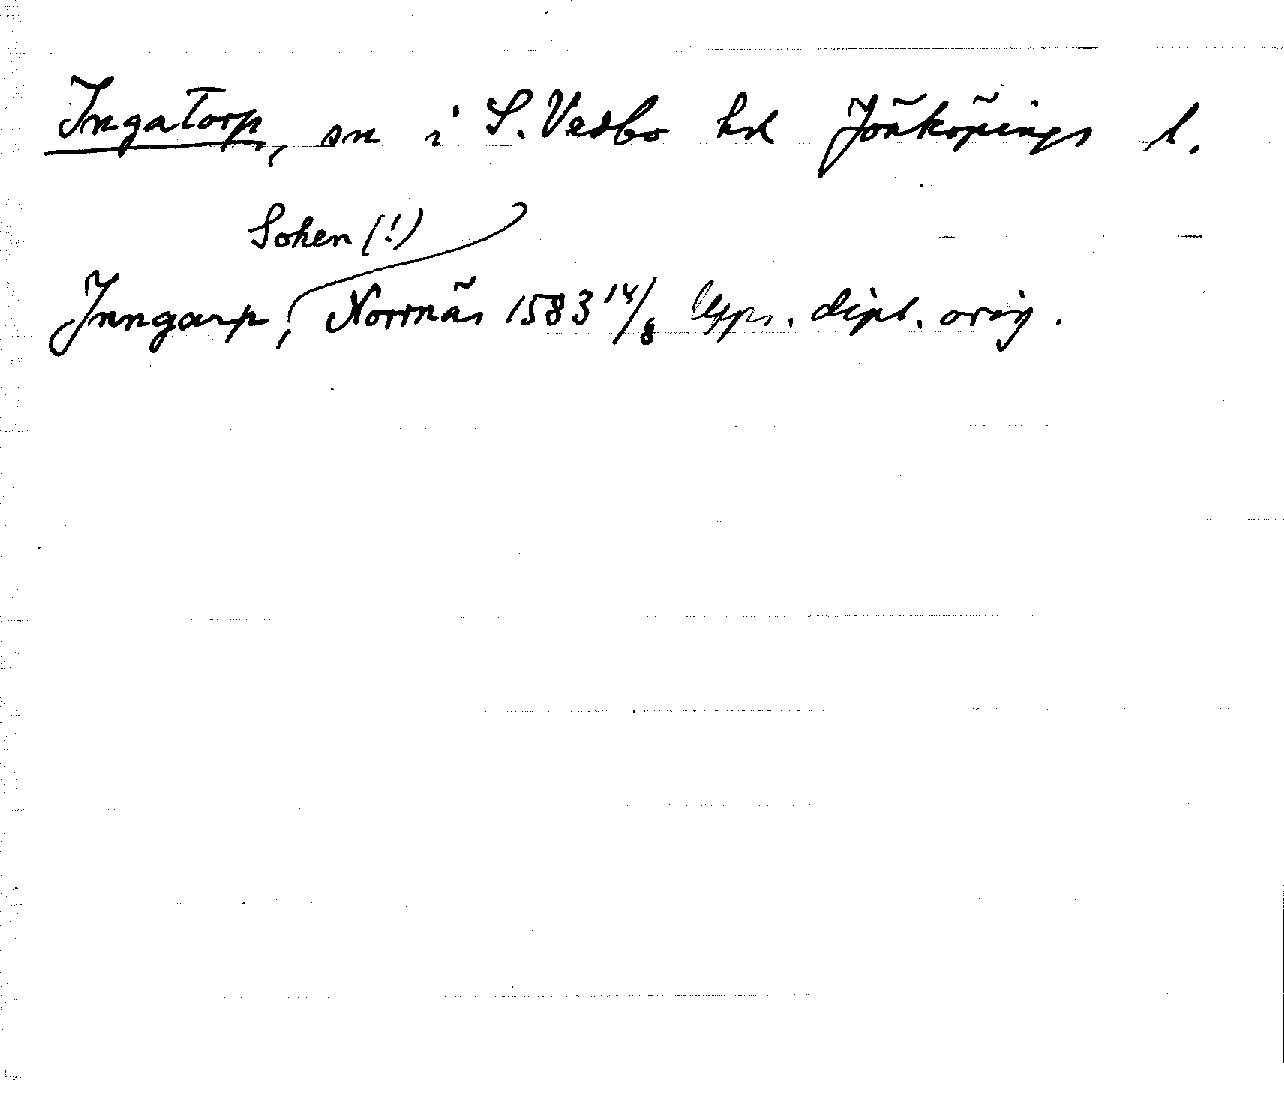 Ingatorp, sn i S. Vedbo hd Jönköpings l.
Soken (!)
Jnngarp, Norrnäs 1583 14/8 Upps. dipl. orig.